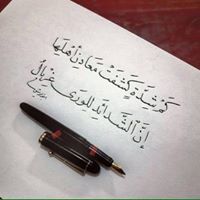 كم شدة كشفت معادن أهلها
إن الشدائد للورى غربال